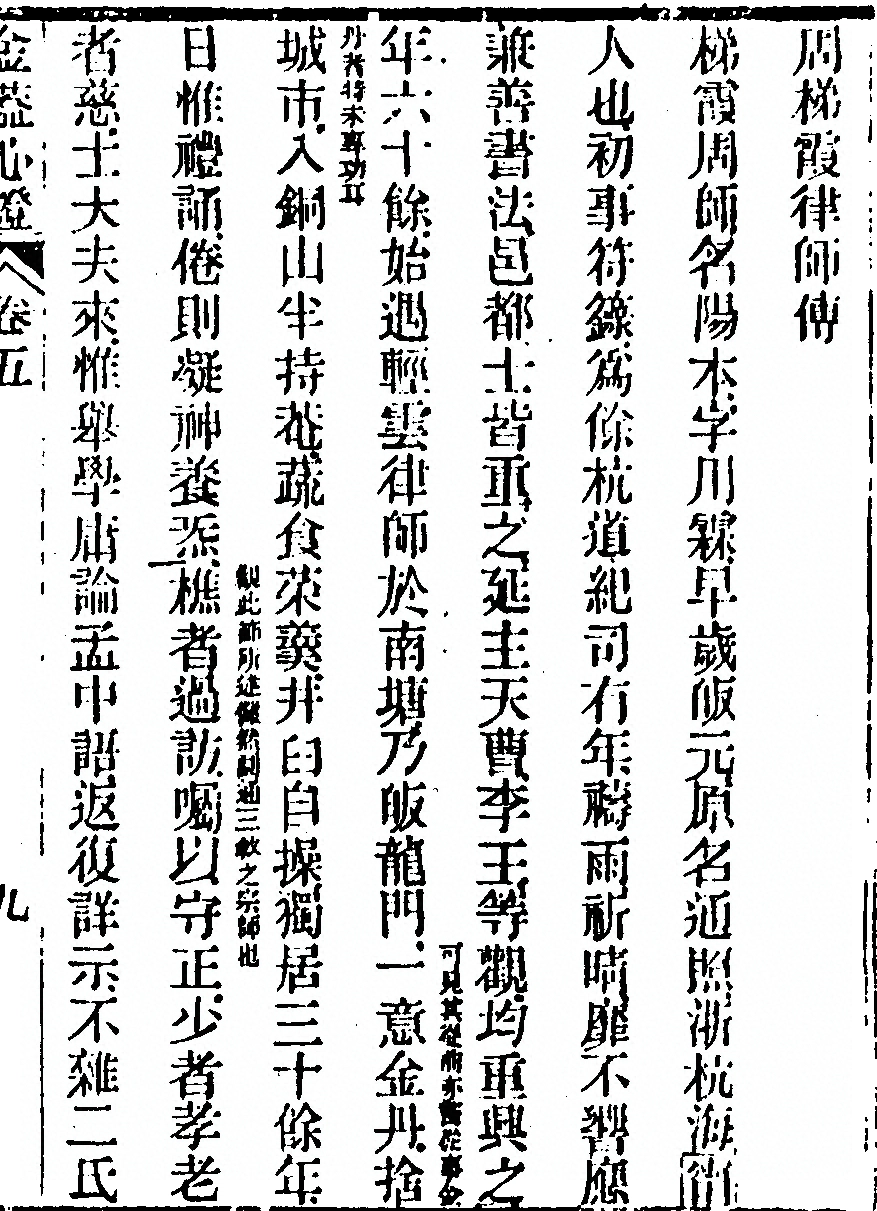 周梯霞律師傳
梯霞周師名陽本字川霖早歲皈元原名通照浙杭海衙
人也初事符籙爲餘杭道紀司有年禱雨祈晴靡不響應
兼善書法邑都士皆重之延主天曹李王等觀均重興之
可見其從前亦嘗從事金
年六十餘始遇輕雲律師於南塘乃皈龍門一意金丹捨
丹者特未專功耳
城市入銅山半持菴蔬食菜羹井臼自操獨居三十餘年
觀此節所述儼然洞通三敎之宗師也
日惟禮誦倦則凝神養炁樵者過訪囑以守正少者孝老
者慈士大夫來惟舉學庸論孟中語返復詳示不雜二氏
金蓋心燈 卷五 九